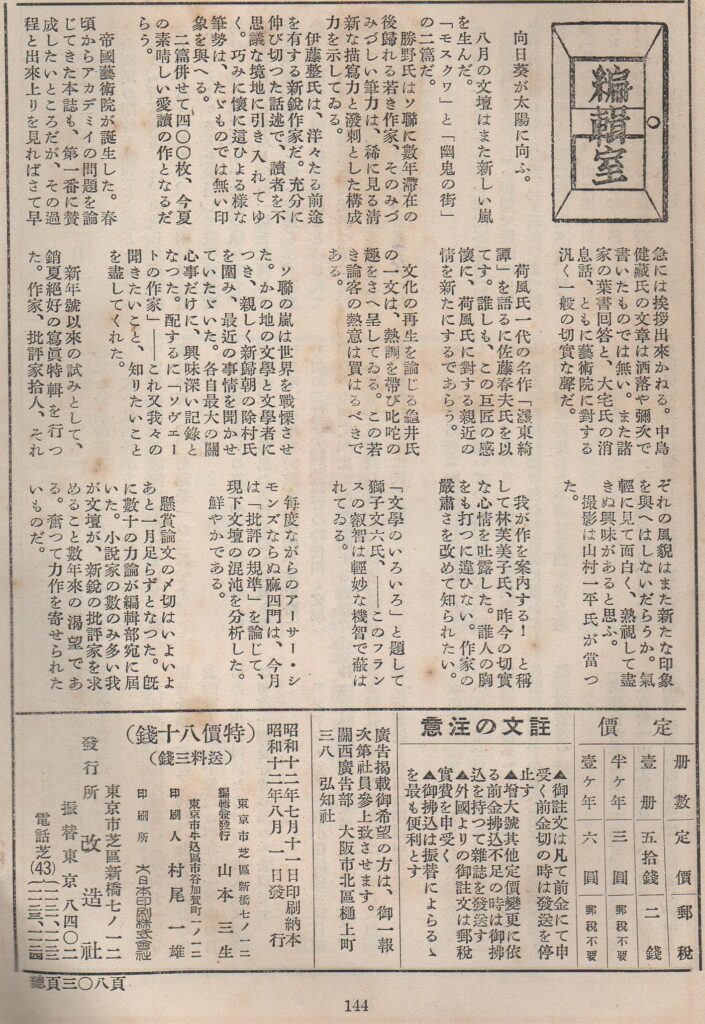 編輯室
向日葵が太陽に向ふ。
八月の文壇はまた新しい嵐
を生んだ。
「モスクワ」と「幽鬼の街」
の二篇だ。
勝野氏はソ聯に數年滯在の
後歸れる若き作家、そのみづ
みづしい筆力は、稀に見る淸
新な描寫力と潑剌とした構成
力を示してゐる。
伊藤整氏は、洋々たる前途
を有する新鋭作家だ。充分に
伸び切つた話述で、讀者を不
思議な境地に引き入れてゆ
く。巧みに懷に這ひよる樣な
筆勢は、たゞものでは無い印
象を與へる。
二篇併せて四〇〇枚、今夏
の素晴しい愛讀の作となるだ
らう。
帝國藝術院が誕生した。春
頃からアカデミイの問題を論
じてきた本誌も、第一番に贊
成したいところだが、その過
程と出來上りを見ればさて早
急には挨拶出來かねる。中島
健藏氏の文章は洒落や彌次で
書いたものでは無い。また諸
家の葉書回答と、大宅氏の消
息話、ともに藝術院に對する
汎く一般の切實な聲だ。
荷風氏一代の名作「濹東綺
譚」を語るに佐藤春夫氏を以
てす。誰しも、この巨匠の感
懷に、荷風氏に對する親近の
情を新たにするであらう。
文化の再生を論じる龜井氏
の一文は、熱調を帶び叱咤の
趣をさへ呈してゐる。この若
き論客の熱意は買はるべきで
ある。
ソ聯の嵐は世界を戰慄させ
た。かの地の文學と文學者に
つき、親しく新歸朝の除村氏
を圍み、最近の事情を開かせ
ていたゞいた。各自最大の關
心事だけに、興味深い記錄と
なつた。配するに「ソヴェー
トの作家」――これ又我々の
聞きたいこと、知りたいこと
を盡してくれた。
新年號以來の試みとして、
銷夏絕好の寫眞特輯を行つ
た。作家、批評家拾人、それ
ぞれの風貌はまた新たな印象
を與へはしないだらうか。氣
輕に見て面白く、熟視して盡
きぬ興味があると思ふ。
撮影は山村一平氏が當つ
た。
我が作を案內する! と稱
して林芙美子氏、昨今の切實
な心情を吐露した。誰人の胸
をも打つに違ひない。作家の
嚴肅さを改めて知られたい。
「文學のいろいろ」と題して
獅子文六氏、――このフラン
スの叡智は輕妙な機智で蔽は
れてゐる。
每度ながらのアーサー・シ
モンズならぬ麻四門は、今月
は「批評の規準」を論じて、
現下文壇の混沌を分析した。
鮮やかである。
懸賞論文の〆切はいよいよ
あと一月足らずとなつた。旣
に數十の力論が編輯部宛に屆
いた。小說家の數のみ多い我
が文壇が、新銳の批評家を求
めること數年來の渴望であ
る。奮つて力作を寄せられた
いものだ。
定價
册數 定價 郵稅
壹册 五拾錢 二錢
半ケ年 三圓 郵稅不要
壹ケ年 六圓 郵稅不要
註文の注意
▲御註文は凡て前金にて申
受く前金切の時は發送を停
止す
▲增大號其他定價變更に依
る前金拂込不足の時は御拂
込を持つて雜誌を發送す
▲外國よりの御註文は郵稅
實費を申受く
▲御拂込は振替によらるゝ
を最も便利とす
廣告揭載御希望の方は、御一報
次第社員參上致させます。
關西廣告部 大阪市北區樋上町
三八 弘知社
昭和十二年七月十一日印刷納本
昭和十二年八月一日發行
(特價八十錢)
(送料三錢)
東京市芝區新橋七ノ一二
編輯兼發行 山本三生
東京市牛込區市谷加賀町一ノ一二
印刷人 村尾一雄
印刷所 大日本印刷株式會社
東京市芝區新橋七ノ一二
發行所 改造社
振替東京八四〇二
電話芝(43)
總頁三〇八頁
144